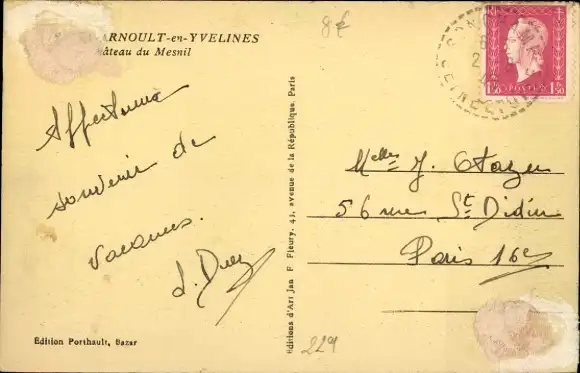 ARNOULT-en-YVELINES
âteau du Mesnil
8€
Affectueux
souvenir de
vacances.
J. Duez
Edition Porthault, Bazar
Editions d'Art Jan F Fleury, 41, avenue de la République, Paris
Melles J. Otazu
56 rue St Didier
Paris 16e
229
1F50 POSTES 1F50